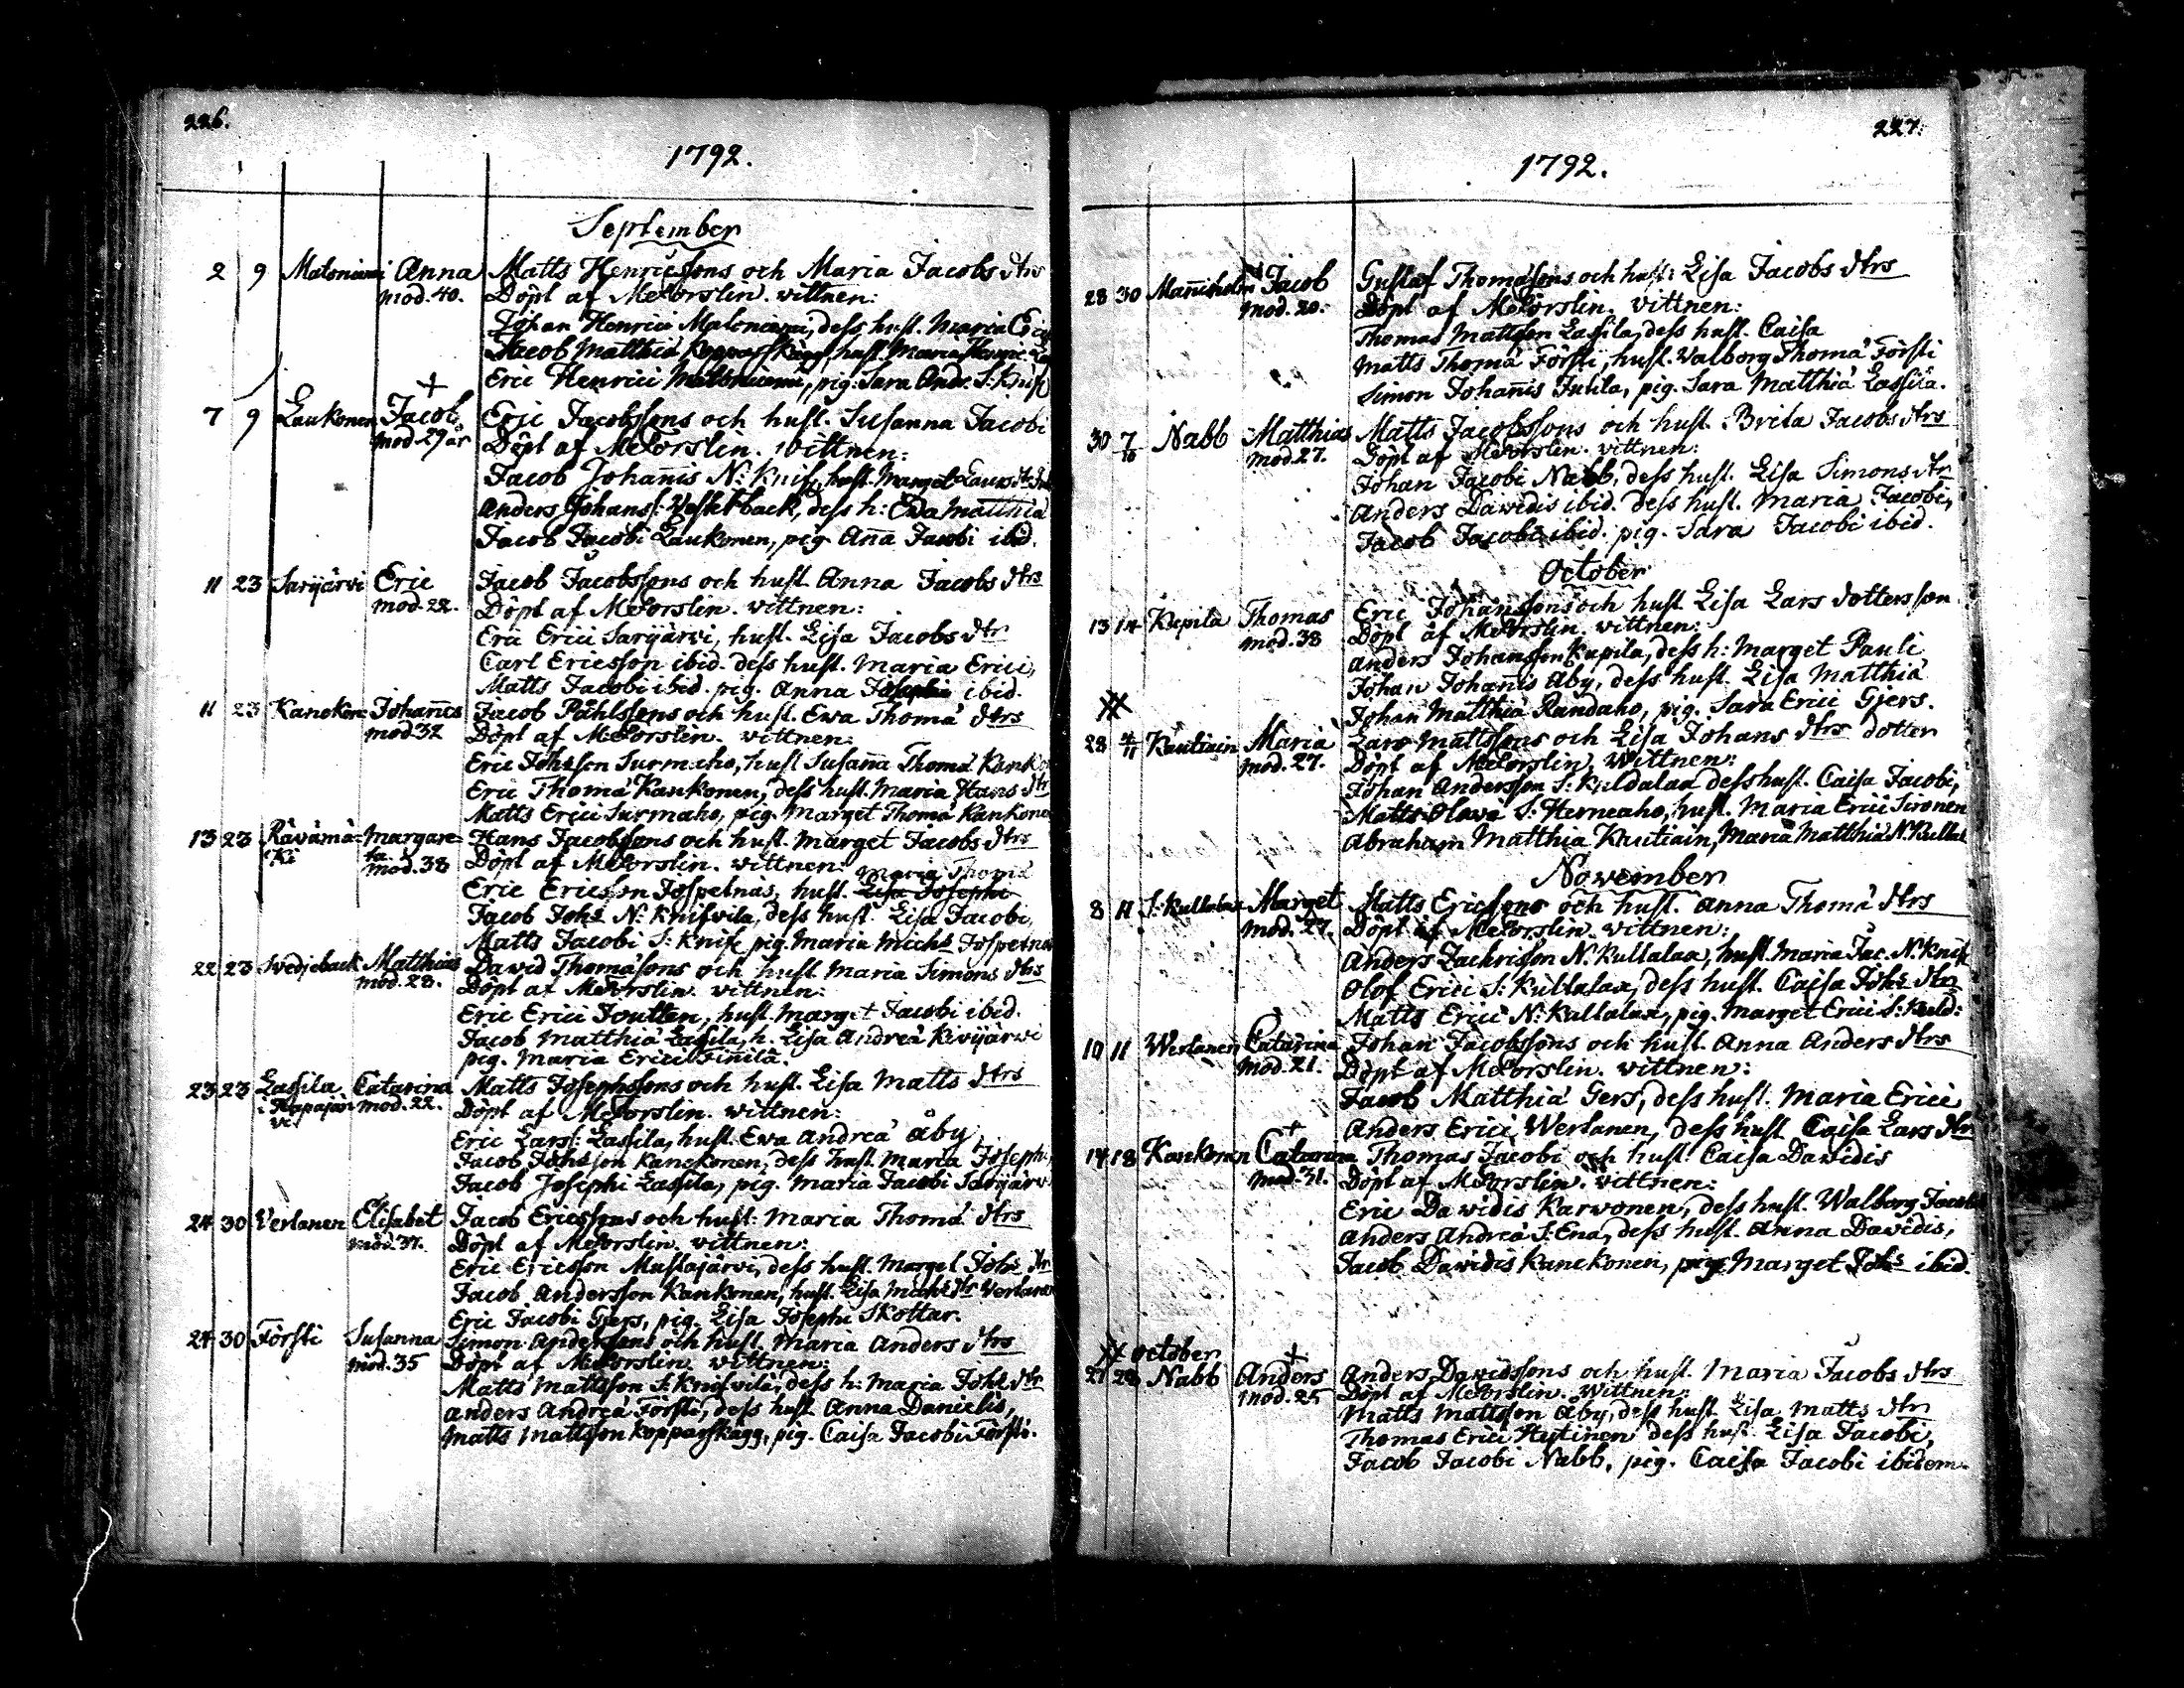 226.
1792.
September
2 9 Matoniemi Anna Matts Henricssons och Maria Jacobs dtrs
mod. 40. Döpt af M: Forslin. vittnen:
Johan Henrici Matoniemi, dess hust. Maria Eric
Jacob Matthiæ Kopparskägg, hust. Maria Henric
Eric Henrici Matoniemi, pig. Sara Andr. S: Knif
+
7 9 Laukonen Jacob Eric Jacobssons och hust. Susanna Jacobi
mod. 29 år Döpt af M: Forslin. vittnen:
Jacob Johannis N: Knif, hust. Marget Lars dr
Anders Johans: Vesterback, dess h: Ewa Matthiä
Jacob Jacobi Laukonen, pig. Anna Jacobi ibid.
11 23 Sarijärvi Eric Jacob Jacobssons och hust. Anna Jacobs dtrs
mod. 22. Döpt af M: Forslin. vittnen:
Eric Erici Sarijärvi, hust. Lisa Jacobs dtr
Carl Ericsson ibid. dess hust. Maria Erici,
Matts Jacobi ibid. pig. Anna Josephi ibid.
11 23 Kanckone Johannes Jacob Påhlssons och hust. Ewa Thomä dtrs
mod. 32 Döpt af M: Forslin. vittnen:
Eric Johsson Surmaho, hust Susanna Thomä Kanko
Eric Thomä Kankonen, dess hust. Maria Hans dtr
Matts Erici Surmaho, pig. Marget Thomä Kankone
13 23 Rävämä- Margare- Hans Jacobssons och hust. Marget Jacobs dtrs
ki ta. mod. 38 Döpt af M: Forslin. vittnen: Maria Thomä
Eric Ericsson Jospetnas, hust. Lisa Josephi
Jacob Johs N: Knifvila, dess hust. Lisa Jacobi,
Matts Jacobi S: Knif, pig. Maria Michs Jospetnas
22 23 Svedjeback Matthias David Thomäsons och hust. Maria Simons dtrs
mod. 28. Döpt af M: Forslin. vittnen:
Eric Erici Joutten, hust. Marget Jacobi ibid.
Jacob Matthiä Lassila, h. Lisa Andreä Kivijärvi
pig. Maria Erici Finilä.
23 23 Lassila Catarina Matts Josephssons och hust. Lisa Matts dtrs
mod. 22. Döpt af M: Forslin. vittnen:
Eric Lars: Lassila, hust. Ewa Andreä Åby
Jacob Johsson Kanckonen, dess hust. Maria Josephi,
Jacob Josephi Lassila, pig. Maria Jacobi Sarijärvi
24 30 Verlanen Elisabet Jacob Ericssons och hust: Maria Thomä dtrs
mod. 37. Döpt af M: Forslin. vittnen:
Eric Ericsson Mustajärvi, dess hust. Marget Johs dtr
Jacob Andersson Kankonen, hust. Lisa Michs dtr Verlanen
Eric Jacobi Gers, pig. Lisa Josephi Skottar.
24 30 Försti Susanna Simon Anderssons och hust. Maria Anders dtrs
mod. 35 Döpt af M: Forslin. vittnen:
Matts Mattsson S: Knifvila, dess h: Maria Johs dtr
Anders Andreä Försti, dess hust. Anna Danielis,
Matts Mattsson Kopparskägg, pig. Caisa Jacobi Försti.
227.
1792.
28 30 Mannisholm Jacob Gustaf Thomäsons och hust: Lisa Jacobs dtrs
mod. 20. Döpt af M: Forslin. vittnen:
Thomas Mattsson Lassila, dess hust. Caisa
Matts Thomä Försti, hust. Valborg Thomä Försti
Simon Johannis Juula, pig. Sara Matthiä Lassila.
30 7/10 Nabb Matthias Matts Jacobssons och hust. Brita Jacobs dtrs
mod. 27. Döpt af M: Forslin. vittnen:
Johan Jacobi Nabb, dess hust. Lisa Simons dtr
Anders Davidis ibid. dess hust. Maria Jacobi,
Jacob Jacobi ibid. pig. Sara Jacobi ibid.
October
13 14 Kupila Thomas Eric Johanssons och hust. Lisa Lars dotters son
mod. 38 Döpt af M: Forslin. vittnen:
Anders Johansson Kupila, dess h: Marget Pauli
Johan Johannis Åby, dess hust. Lisa Matthiä
Johan Matthiä Randaho, pig. Sara Erici Gjers.
XX
28 4/11 Kautiain Maria Lars Mattssons och Lisa Johans dtrs dotter
mod. 27. Döpt af M: Forslin. Wittnen:
Johan Andersson S: Kuldalaa dess hust. Caisa Jacobi,
Matts Olavi S: Herneaho, hust. Maria Erici Sironen
Abraham Matthiä Kautiain, Maria Matthiä N: Kullal
November
8 11 S: Kullalaa Marget Matts Ericssons och hust. Anna Thomä dtrs
mod. 27. Döpt af M: Forslin. vittnen:
Anders Zachrisson N: Kullalaa, hust. Maria Jac. N: Knif
Olof Erici S: Kullalaa, dess hust. Caisa Johs dtr
Matts Erici N: Kullalaa, pig. Marget Erici S: Kuld:
10 11 Werlanen Catarina Johan Jacobssons och hust. Anna Anders dtrs
mod. 21. Döpt af M: Forslin. vittnen:
Jacob Matthiä Gers, dess hust. Maria Erici
Anders Erici Werlanen, dess hust. Caisa Lars dtr
+
17 18 Kankonen Catarina Thomas Jacobi och hust. Caisa Davidis
mod. 31. Döpt af M: Forslin. vittnen:
Eric Davidis Karvonen, dess hust. Walborg Jacobi
Anders Andreä S: Ena, dess hust. Anna Davidis,
Jacob Davidis Kanckonen, pig. Marget Johs ibid.
XX October
+
27 28 Nabb Anders Anders Davidssons och hust. Maria Jacobs dtrs
mod. 25 Döpt af M: Forslin. Wittnen:
Matts Mattsson Åby, dess hust. Lisa Matts dtr
Thomas Erici Hytinen dess hust. Lisa Jacobi,
Jacob Jacobi Nabb, pig. Caisa Jacobi ibidem.